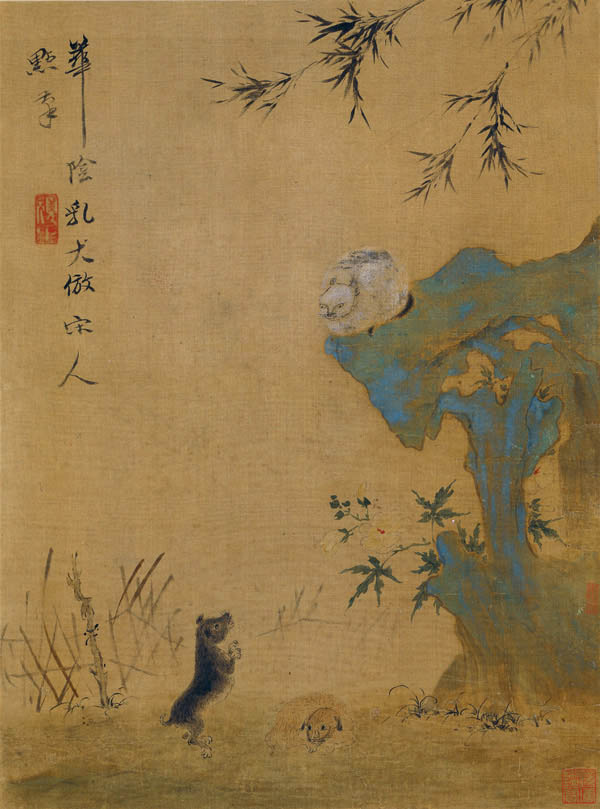 華陰乳犬倣宋人
點夲